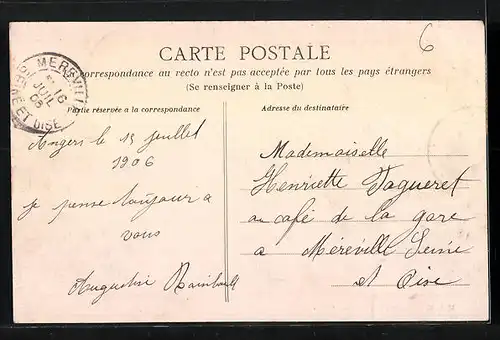 6
MEREVILLE
16
JUIL
06
SEINE ET OISE
CARTE POSTALE
La correspondance au recto n'est pas acceptée par tous les pays étrangers
(Se renseigner à la Poste)
Partie réservée a la correspondance
Adresse du destinataire
Angers le 15 juillet
1906
je pense toujour a
vous
Augustine
Mademoiselle
Henriette
au café de la gare
a Méréville Seine
et Oise